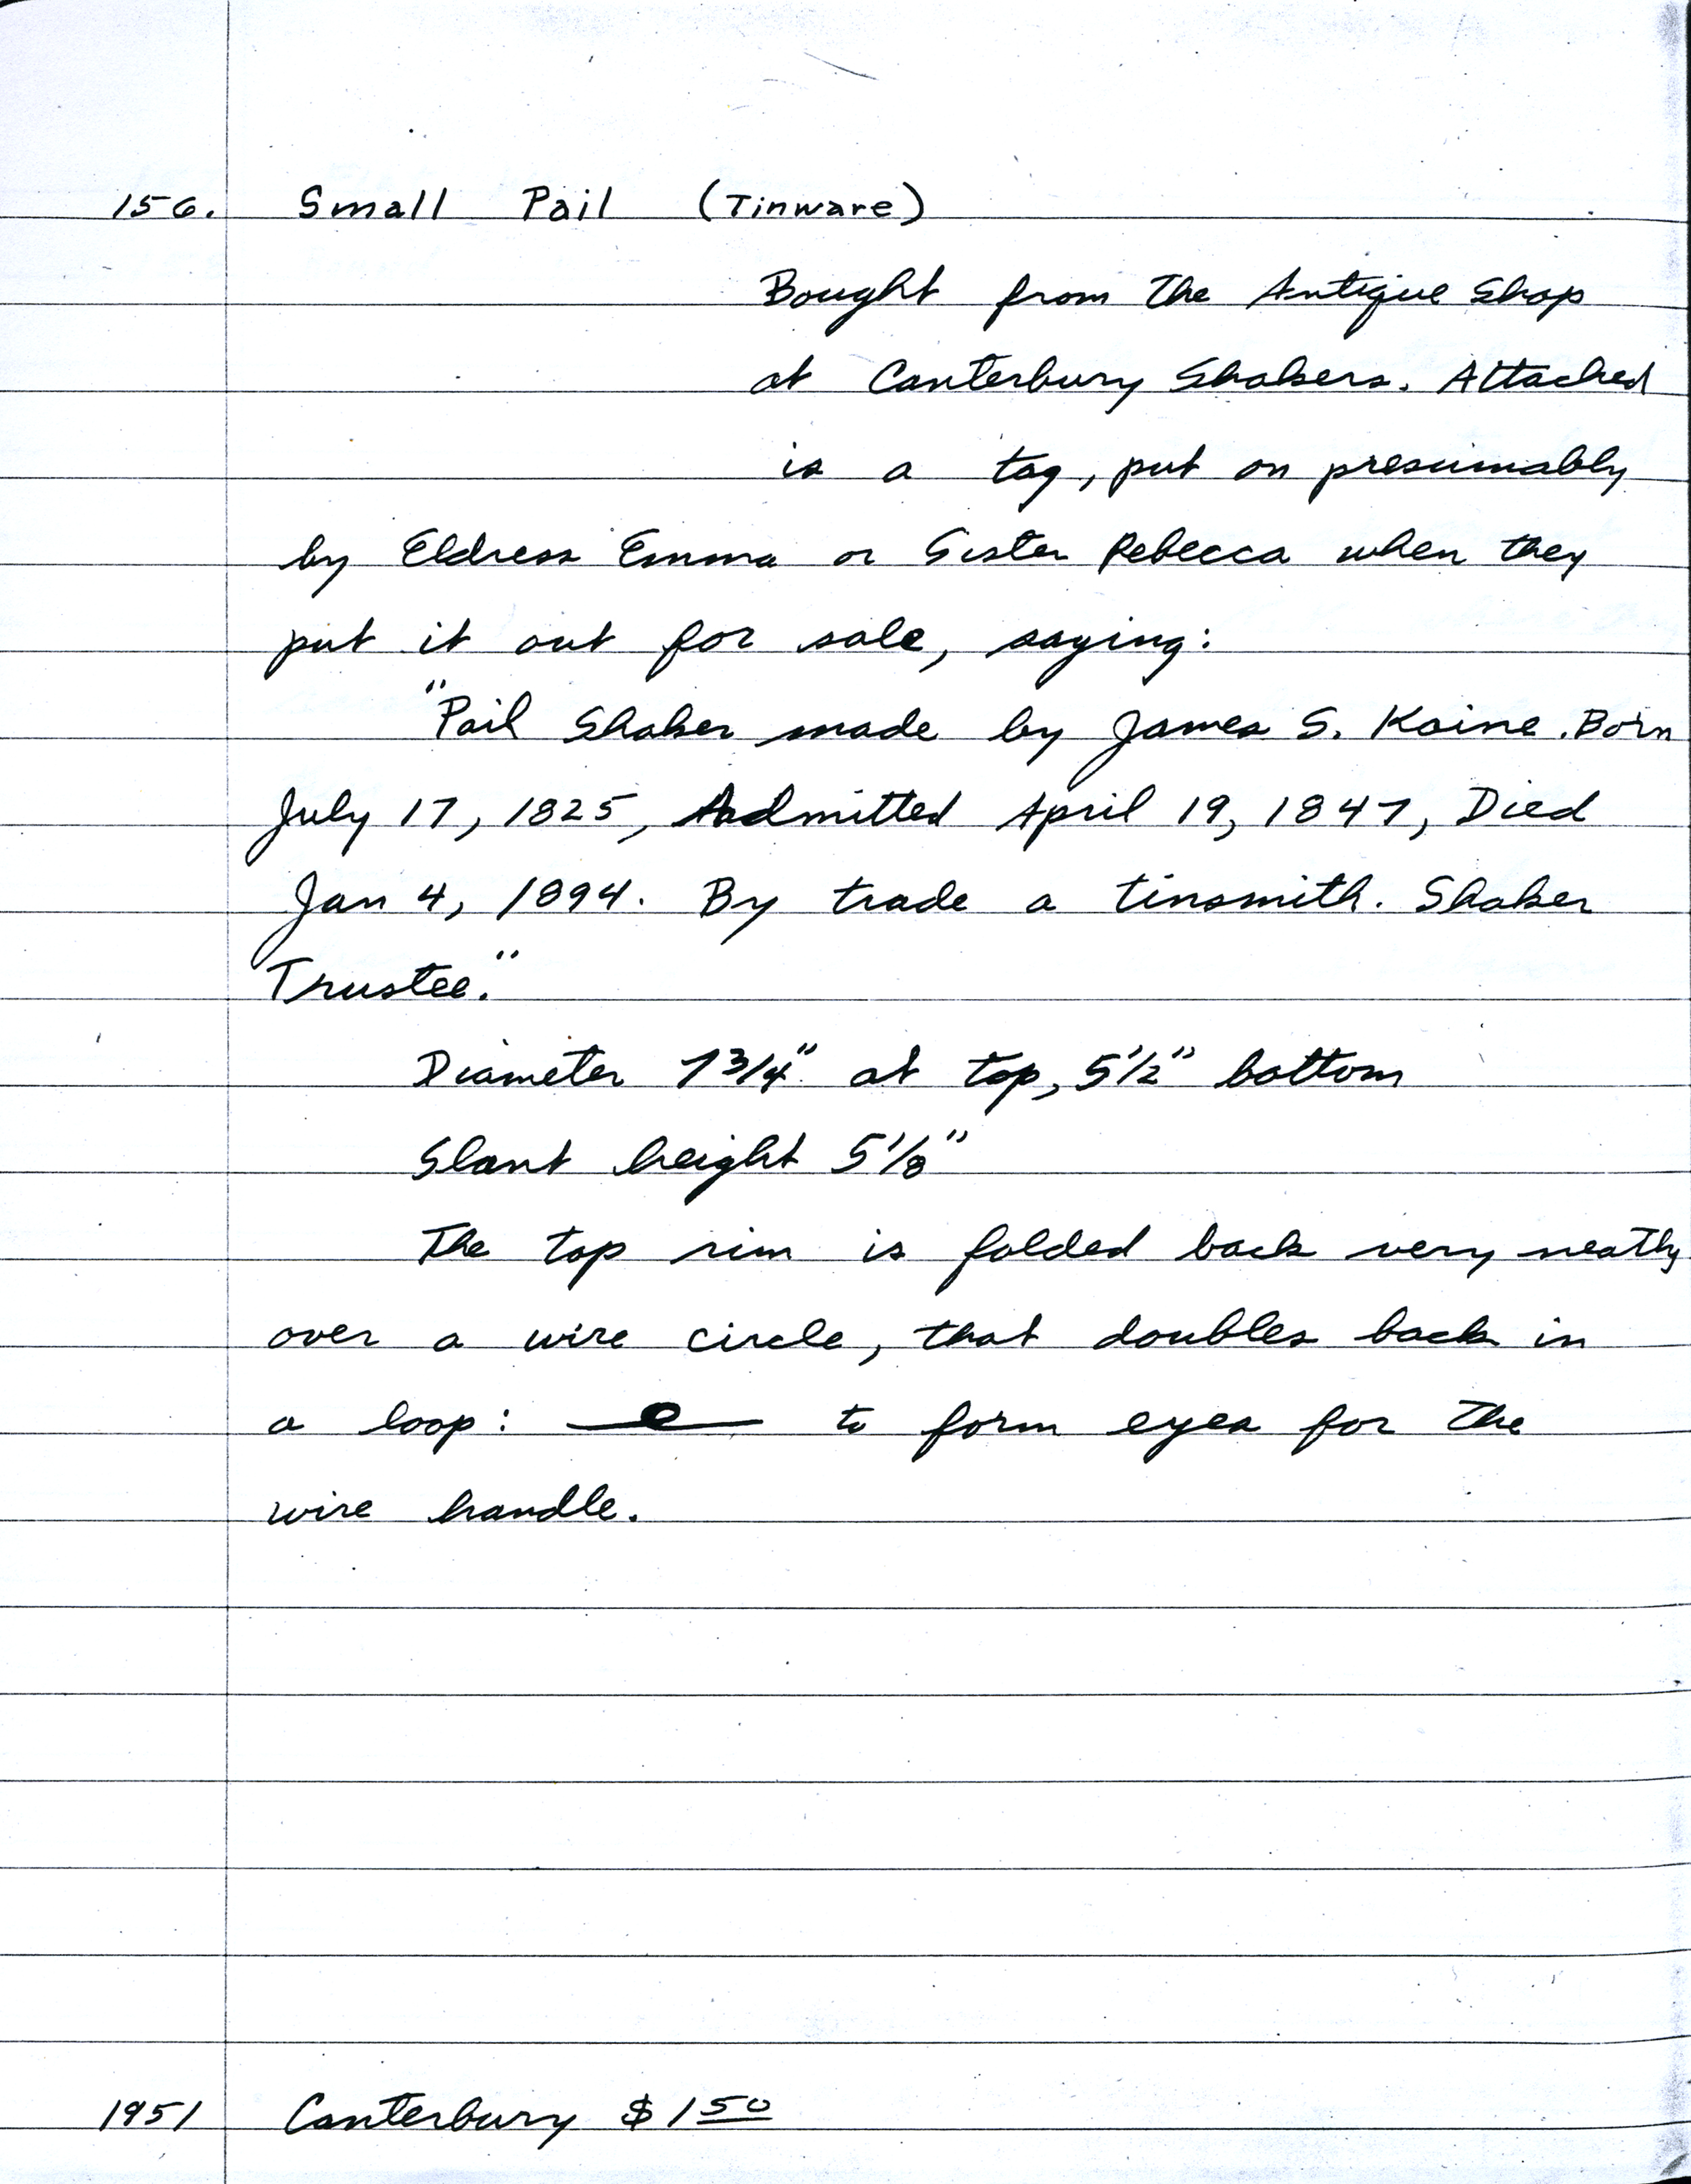 156. Small Pail (Tinware)
Bought from the Antique Shop
at Canterbury Shakers. Attached
is a tag, put on presumably
by Eldress Emma or Sister Rebecca when they
put it out for sale, saying:
"Pail Shaker made by James S. Kaine. Born
July 17, 1825, Admitted April 19, 1847, Died
Jan 4, 1894. By trade a tinsmith. Shaker
Trustee."
Diameter 7 3/4" at top, 5 1/2" bottom
Slant height 5 1/8"
The top rim is folded back very neatly
over a wire circle, that doubles back in
a loop: to form eyes for the
wire handle.
1951 Canterbury $1 50